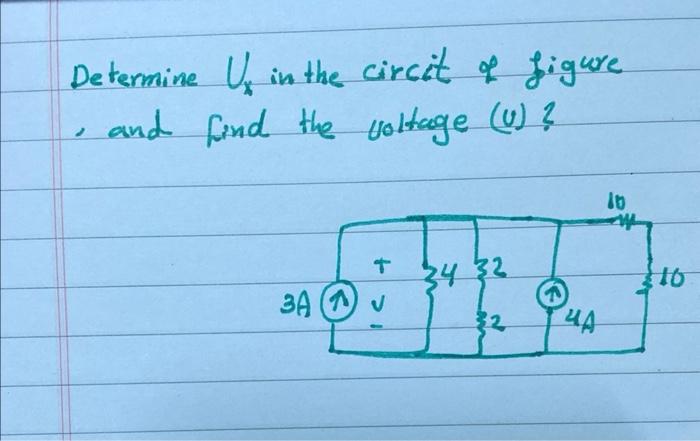 Determine Uₓ in the circit of figure
, and find the voltage (U) ?
10
+
3A
V
-
4
2
2
4A
10